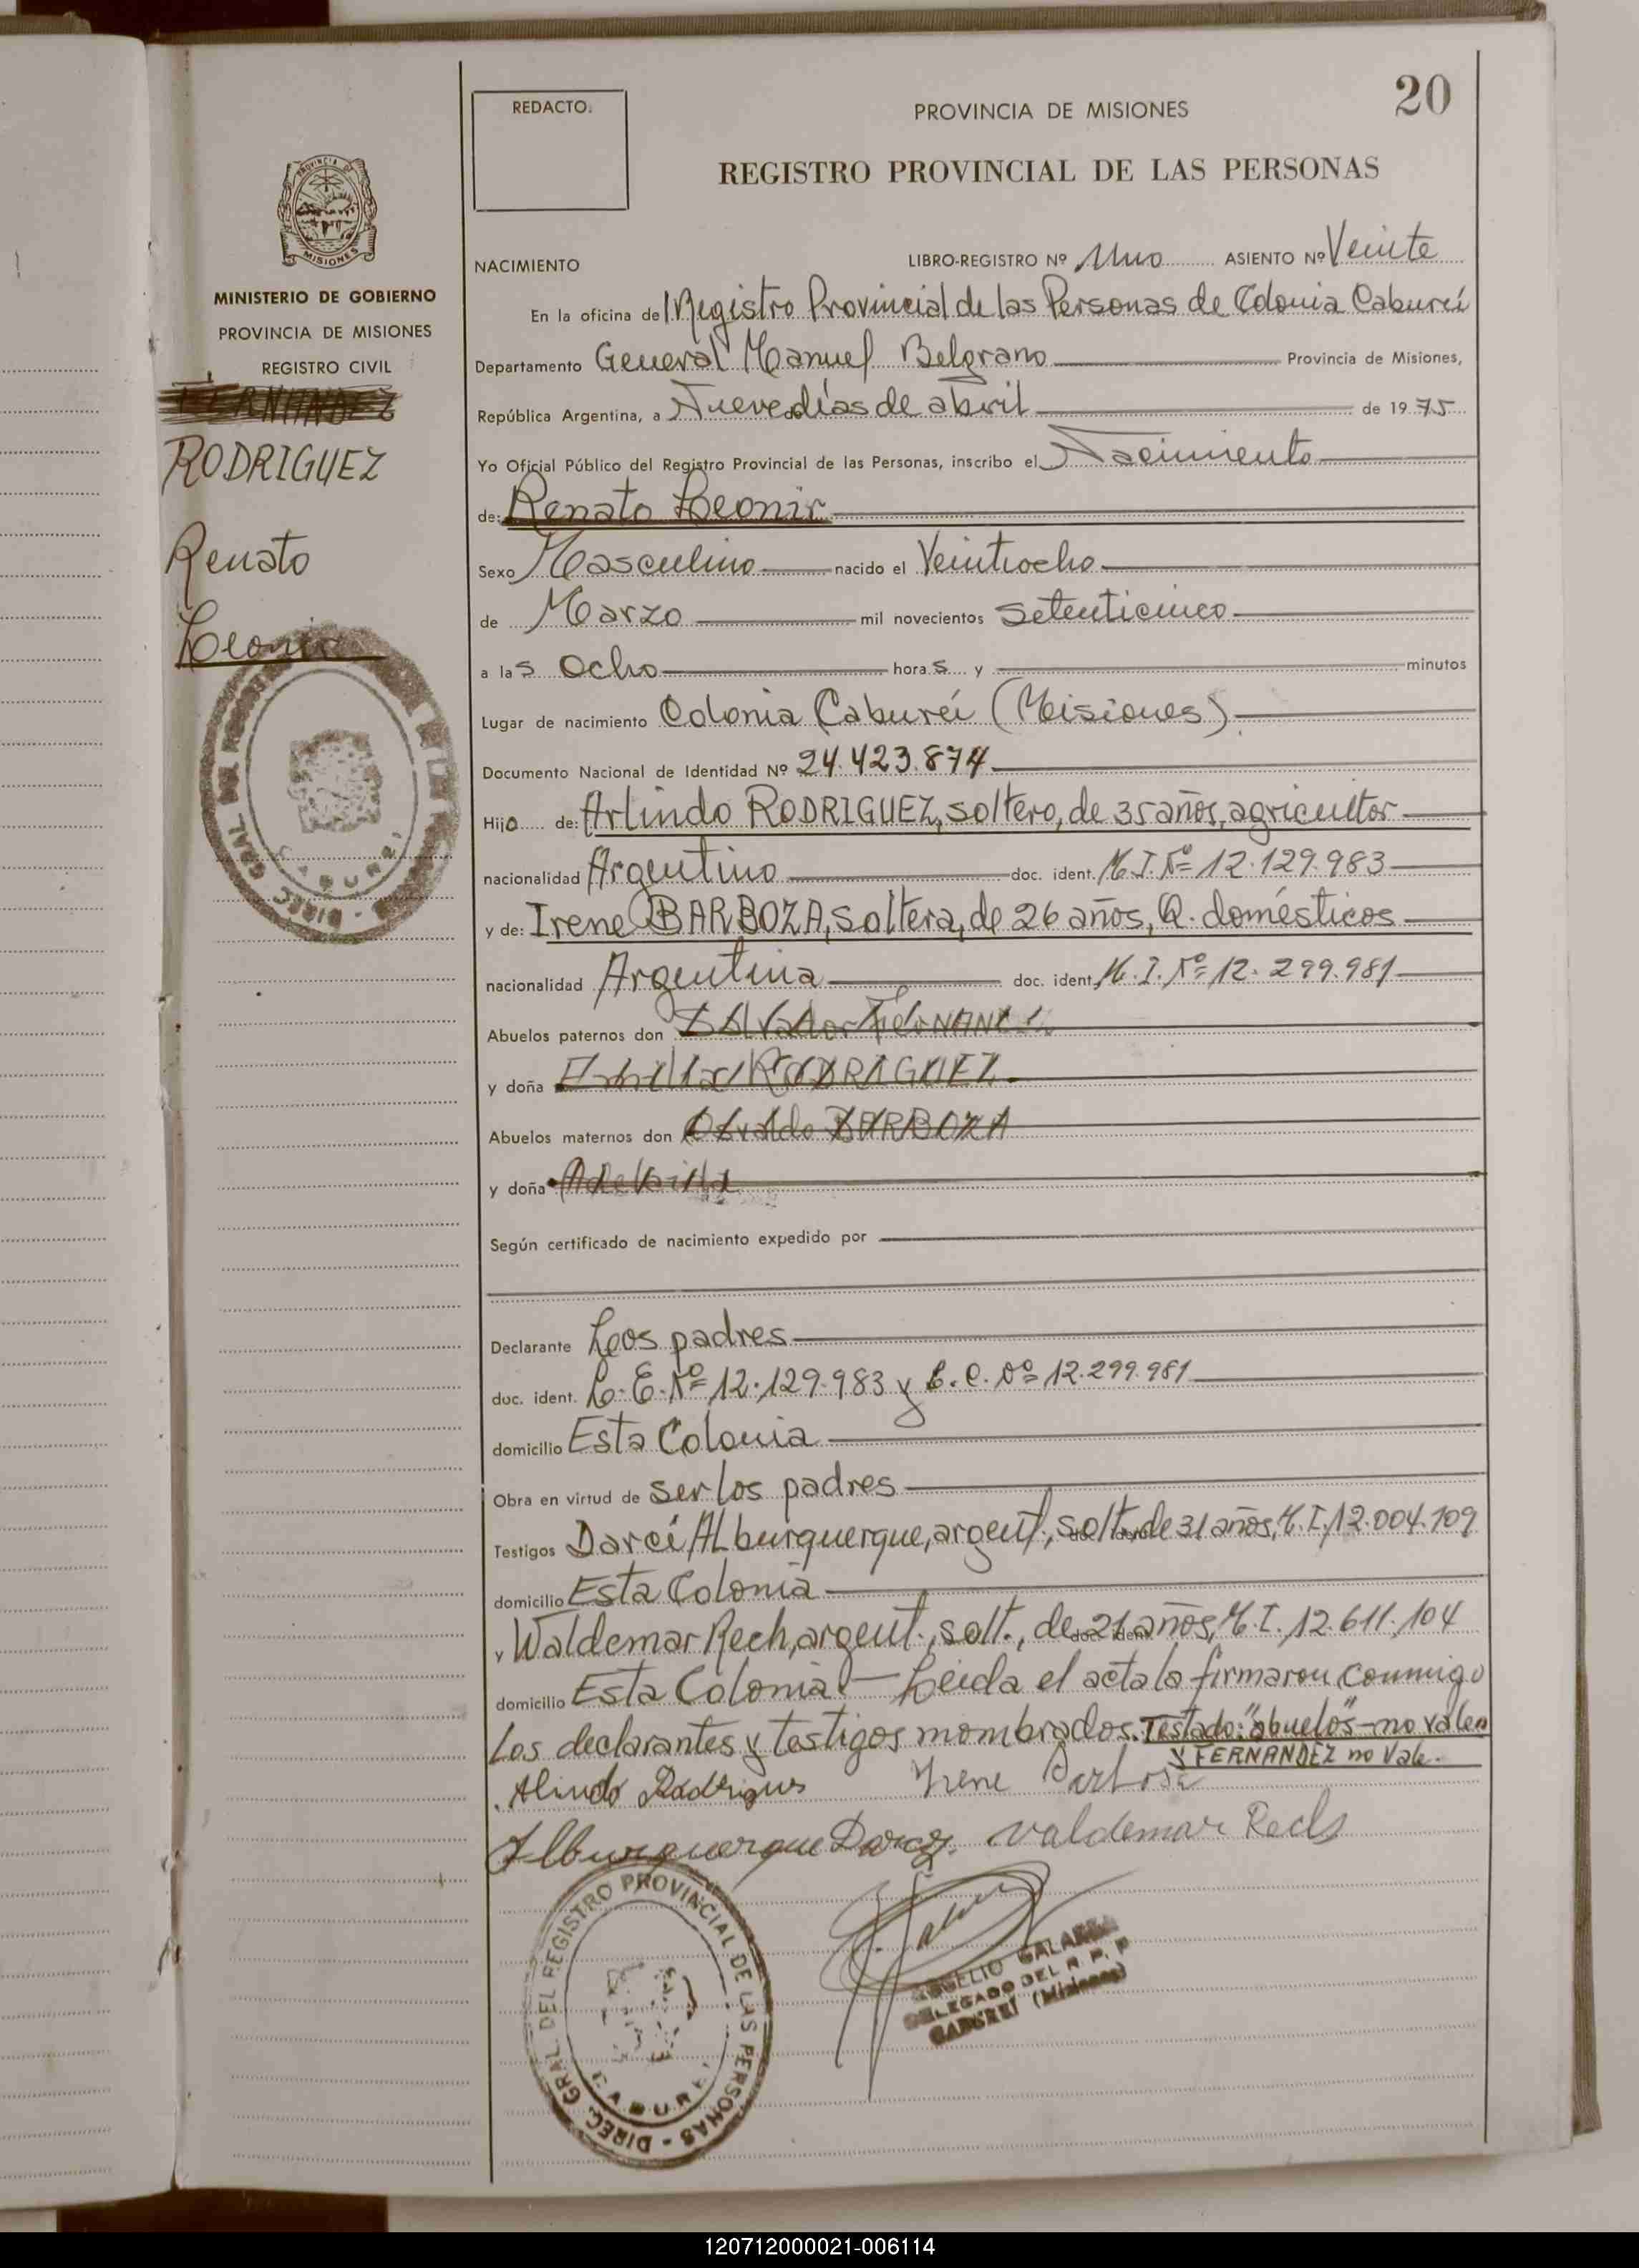 20
REDACTO.
PROVINCIA DE MISIONES
REGISTRO PROVINCIAL DE LAS PERSONAS
PROVINCIA DE
MISIONES
MINISTERIO DE GOBIERNO
PROVINCIA DE MISIONES
REGISTRO CIVIL
FERNANDEZ
RODRIGUEZ
Renato
Leonir
NACIMIENTO LIBRO-REGISTRO Nº Uno ASIENTO Nº Veinte
En la oficina del Registro Provincial de las Personas de Colonia Cabureí
Departamento General Manuel Belgrano Provincia de Misiones,
República Argentina, a Nueve días de abril de 1975
Yo Oficial Público del Registro Provincial de las Personas, inscribo el Nacimiento
de: Renato Leonir
Sexo Masculino nacido el Veintiocho
de Marzo mil novecientos setenticinco
a las Ocho horas y minutos
Lugar de nacimiento Colonia Cabureí (Misiones)
Documento Nacional de Identidad Nº 24.423.874
Hijo de: Arlindo RODRIGUEZ, soltero, de 35 años, agricultor
nacionalidad Argentino doc. ident. M.I.Nº 12.129.983
y de: Irene BARBOZA, soltera, de 26 años, Q. domésticos
nacionalidad Argentina doc. ident. M.I.Nº 12.299.981
Abuelos paternos don Salvador FERNANDEZ
y doña RODRIGUEZ
Abuelos maternos don Osvaldo BARBOZA
y doña
Según certificado de nacimiento expedido por
Declarante Leos padres
doc. ident. L.E.Nº 12.129.983 y L.C.Nº 12.299.981
domicilio Esta Colonia
Obra en virtud de ser los padres
Testigos Darcí Alburquerque, argent., solt., de 31 años, M.I. 12.004.109
domicilio Esta Colonia
y Waldemar Rech, argent., solt., de 21 años, M.I. 12.611.104
domicilio Esta Colonia.- Leída el acta la firmaron conmigo
Los declarantes y testigos nombrados. Testado: "abuelos" - no valen
y FERNANDEZ no Vale.
Alindo Rodrigues Irene Barbosa
Alburquerque Darcy. Valdemar Rech
DIREC. GRAL. DEL REGISTRO PROVINCIAL DE LAS PERSONAS
CABUREI
ROGELIO GALARZA
DELEGADO DEL R. P. P
CABUREI (Misiones)
120712000021-006114